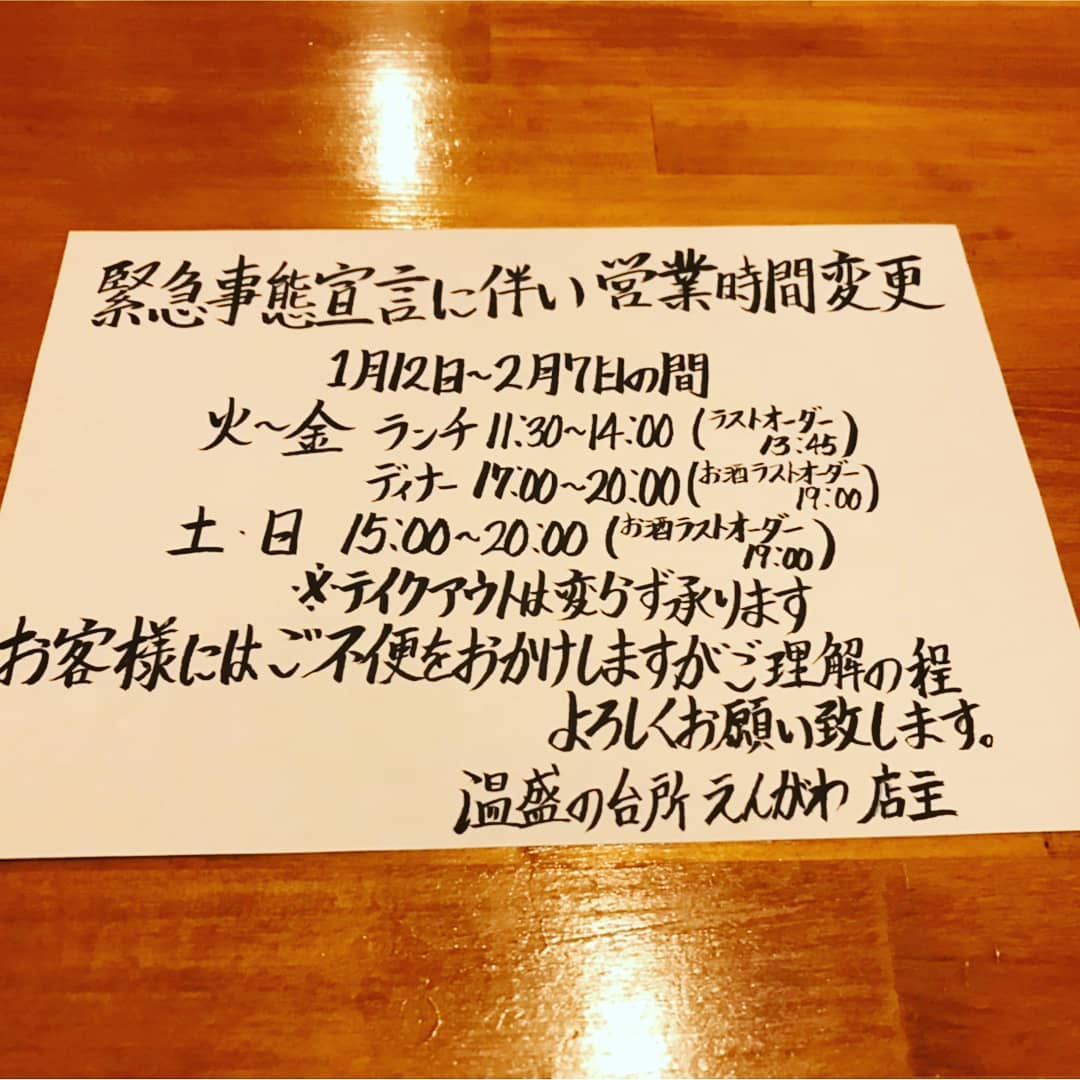 緊急事態宣言に伴い営業時間変更
1月12日~2月7日の間
火~金 ランチ 11:30~14:00 (ラストオーダー 13:45)
ディナー 17:00~20:00 (お酒ラストオーダー 19:00)
土・日 15:00~20:00 (お酒ラストオーダー 19:00)
※テイクアウトは変らず承ります
お客様にはご不便をおかけしますがご理解の程
よろしくお願い致します。
温盛の台所 えんがわ 店主